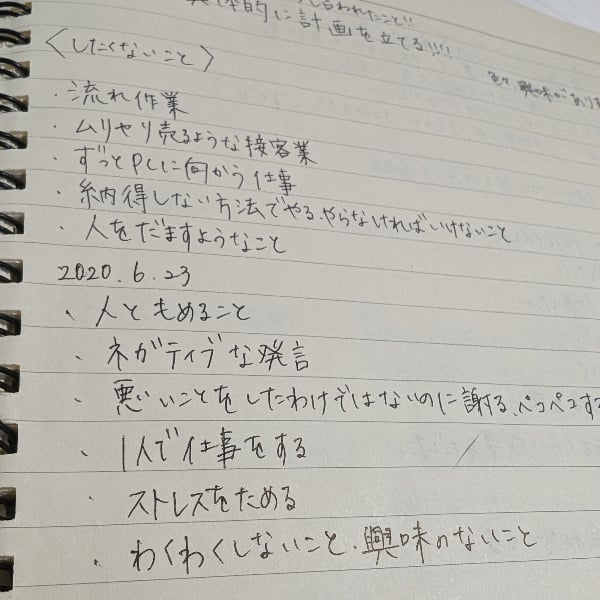 しらわれたこと!!
体的に計画を立てる!!!!
色々、興味がある
〈したくないこと〉
・流れ作業
・ムリヤリ売るような接客業
・ずっとPCに向かう仕事
・納得しない方法でやるやらなければいけないこと
・人をだますようなこと
2020.6.23
・人ともめること
・ネガティブな発言
・悪いことをしたわけではないのに謝る、ペコペコする
・1人で仕事をする
・ストレスをためる
・わくわくしないこと、興味のないこと